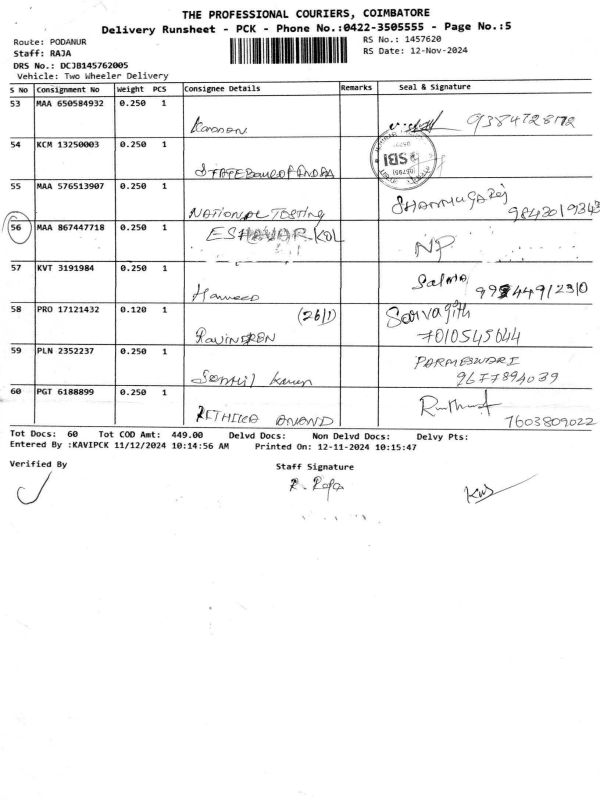 THE PROFESSIONAL COURIERS, COIMBATORE
Delivery Runsheet - PCK - Phone No.:0422-3505555 - Page No.:5
Route: PODANUR
RS No.: 1457620
Staff: RAJA
RS Date: 12-Nov-2024
DRS No.: DCJB145762005
Vehicle: Two Wheeler Delivery
S No Consignment No Weight PCS Consignee Details Remarks Seal & Signature
53 MAA 650584932 0.250 1 9384728172
54 KCM 13250003 0.250 1 STATE BANK OF INDIA SBI
55 MAA 576513907 0.250 1 NATIONAL TESTING 9843019343
56 MAA 867447718 0.250 1 NP
57 KVT 3191984 0.250 1 Hameed Salma
58 PRO 17121432 0.120 1 (26/1) 7010545044
59 PLN 2352237 0.250 1 PARMESWARI 9677894039
60 PGT 6188899 0.250 1 ANAND 7603809022
Tot Docs: 60 Tot COD Amt: 449.00 Delvd Docs: Non Delvd Docs: Delvy Pts:
Entered By :KAVIPCK 11/12/2024 10:14:56 AM Printed On: 12-11-2024 10:15:47
Verified By
Staff Signature
R. Raja